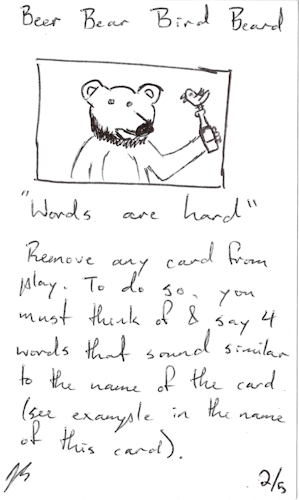 Beer Bear Bird Beard
"Words are hard"
Remove any card from
play. To do so, you
must think of & say 4
words that sound similar
to the name of the card
(see example in the name
of this card).
2/5